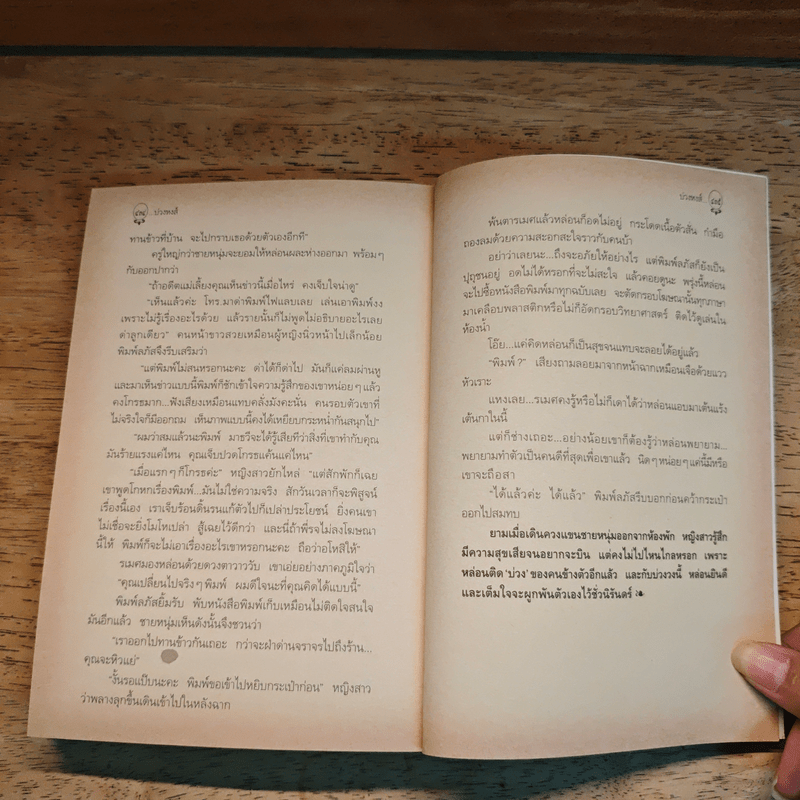 ๔๒๘ ... บ่วงหงส์
ทานข้าวที่บ้าน จะไปกราบเธอด้วยตัวเองอีกที”
ครู่ใหญ่กว่าชายหนุ่มจะยอมให้หล่อนผละห่างออกมา พร้อมๆ
กับออกปากว่า
“ถ้าอดีตแม่เลี้ยงคุณเห็นข่าวนี้เมื่อไหร่ คงเจ็บใจน่าดู”
“เห็นแล้วค่ะ โทร.มาด่าพิมพ์ไฟแลบเลย เล่นเอาพิมพ์งง
เพราะไม่รู้เรื่องอะไรด้วย แล้วรายนั้นก็ไม่พูดไม่อธิบายอะไรเลย
ด่าลูกเดียว” คนหน้าขาวสวยเหมือนผู้หญิงนิ่วหน้าไปเล็กน้อย
พิมพ์ลภัสจึงรีบเสริมว่า
“แต่พิมพ์ไม่สนหรอกนะคะ ด่าได้ก็ด่าไป มันก็แค่ลมผ่านหู
และมาเห็นข่าวแบบนี้พิมพ์ก็ชักเข้าใจความรู้สึกของเขาหน่อยๆ แล้ว
คงโกรธมาก...ฟังเสียงเหมือนแทบคลั่งมังคะนั่น คนรอบตัวเขาที่
ไม่จริงใจก็มีออกถม เห็นภาพแบบนี้คงได้เหยียบกระหน่ำกันสนุกไป”
“ผมว่าสมแล้วนะพิมพ์ มาธวีจะได้รู้เสียทีว่าสิ่งที่เขาทำกับคุณ
มันร้ายแรงแค่ไหน คุณเจ็บปวดโกรธแค้นแค่ไหน”
“เมื่อแรกๆ ก็โกรธค่ะ” หญิงสาวยักไหล่ “แต่สักพักก็เฉย
เขาพูดโกหกเรื่องพิมพ์...มันไม่ใช่ความจริง สักวันเวลาก็จะพิสูจน์
เรื่องนี้เอง เราเจ็บร้อนดิ้นรนแก้ตัวไปก็เปล่าประโยชน์ ยิ่งคนเขา
ไม่เชื่อจะยิ่งโมโหเปล่า สู้เฉยไว้ดีกว่า และนี่ถ้าพี่รจไม่ลงโฆษณา
นี้ให้ พิมพ์ก็จะไม่เอาเรื่องอะไรเขาหรอกนะคะ ถือว่าอโหสิให้”
รเมศมองหล่อนด้วยดวงตาวาววับ เขาเอ่ยอย่างภาคภูมิใจว่า
“คุณเปลี่ยนไปจริงๆ พิมพ์ ผมดีใจนะที่คุณคิดได้แบบนี้”
พิมพ์ลภัสยิ้มรับ พับหนังสือพิมพ์เก็บเหมือนไม่ติดใจสนใจ
มันอีกแล้ว ชายหนุ่มเห็นดังนั้นจึงชวนว่า
“เราออกไปทานข้าวกันเถอะ กว่าจะฝ่าด่านจราจรไปถึงร้าน...
คุณจะหิวแย่”
“งั้นรอแป๊บนะคะ พิมพ์ขอเข้าไปหยิบกระเป๋าก่อน” หญิงสาว
ว่าพลางลุกขึ้นเดินเข้าไปในหลังฉาก
บ่วงหงส์ ...
พ้นตารเมศแล้วหล่อนก็อดไม่อยู่ กระโดดเนื้อตัวสั่น กำมือ
ถองลมด้วยความสะอกสะใจราวกับคนบ้า
อย่าว่าเลยนะ...ถึงจะอภัยให้อย่างไร แต่พิมพ์ลภัสก็ยังเป็น
ปุถุชนอยู่ อดไม่ได้หรอกที่จะไม่สะใจ แล้วคอยดูนะ พรุ่งนี้หล่อน
จะไปซื้อหนังสือพิมพ์มาทุกฉบับเลย จะตัดกรอบโฆษณานั้นทุกภาษา
มาเคลือบพลาสติกหรือไม่ก็อัดกรอบวิทยาศาสตร์ ติดไว้ดูเล่นใน
ห้องน้ำ
โอ๊ย...แค่คิดหล่อนก็เป็นสุขจนแทบจะลอยได้อยู่แล้ว
“พิมพ์ ?” เสียงถามลอยมาจากหน้าฉากเหมือนเจือด้วยแวว
หัวเราะ
แหงเลย...รเมศคงรู้หรือไม่ก็เดาได้ว่าหล่อนแอบมาเต้นแร้ง
เต้นกาในนี้
แต่ก็ช่างเถอะ...อย่างน้อยเขาก็ต้องรู้ว่าหล่อนพยายาม...
พยายามทำตัวเป็นคนดีที่สุดเพื่อเขาแล้ว นิดๆ หน่อยๆ แค่นี้มีหรือ
เขาจะถือสา
“ได้แล้วค่ะ ได้แล้ว” พิมพ์ลภัสรีบบอกก่อนคว้ากระเป๋า
ออกไปสมทบ
ยามเมื่อเดินควงแขนชายหนุ่มออกจากห้องพัก หญิงสาวรู้สึก
มีความสุขเสียจนอยากจะบิน แต่คงไม่ไปไหนไกลหรอก เพราะ
หล่อนติด ‘บ่วง’ ของคนข้างตัวอีกแล้ว และกับบ่วงวงนี้ หล่อนยินดี
และเต็มใจจะผูกพันตัวเองไว้ชั่วนิรันดร์